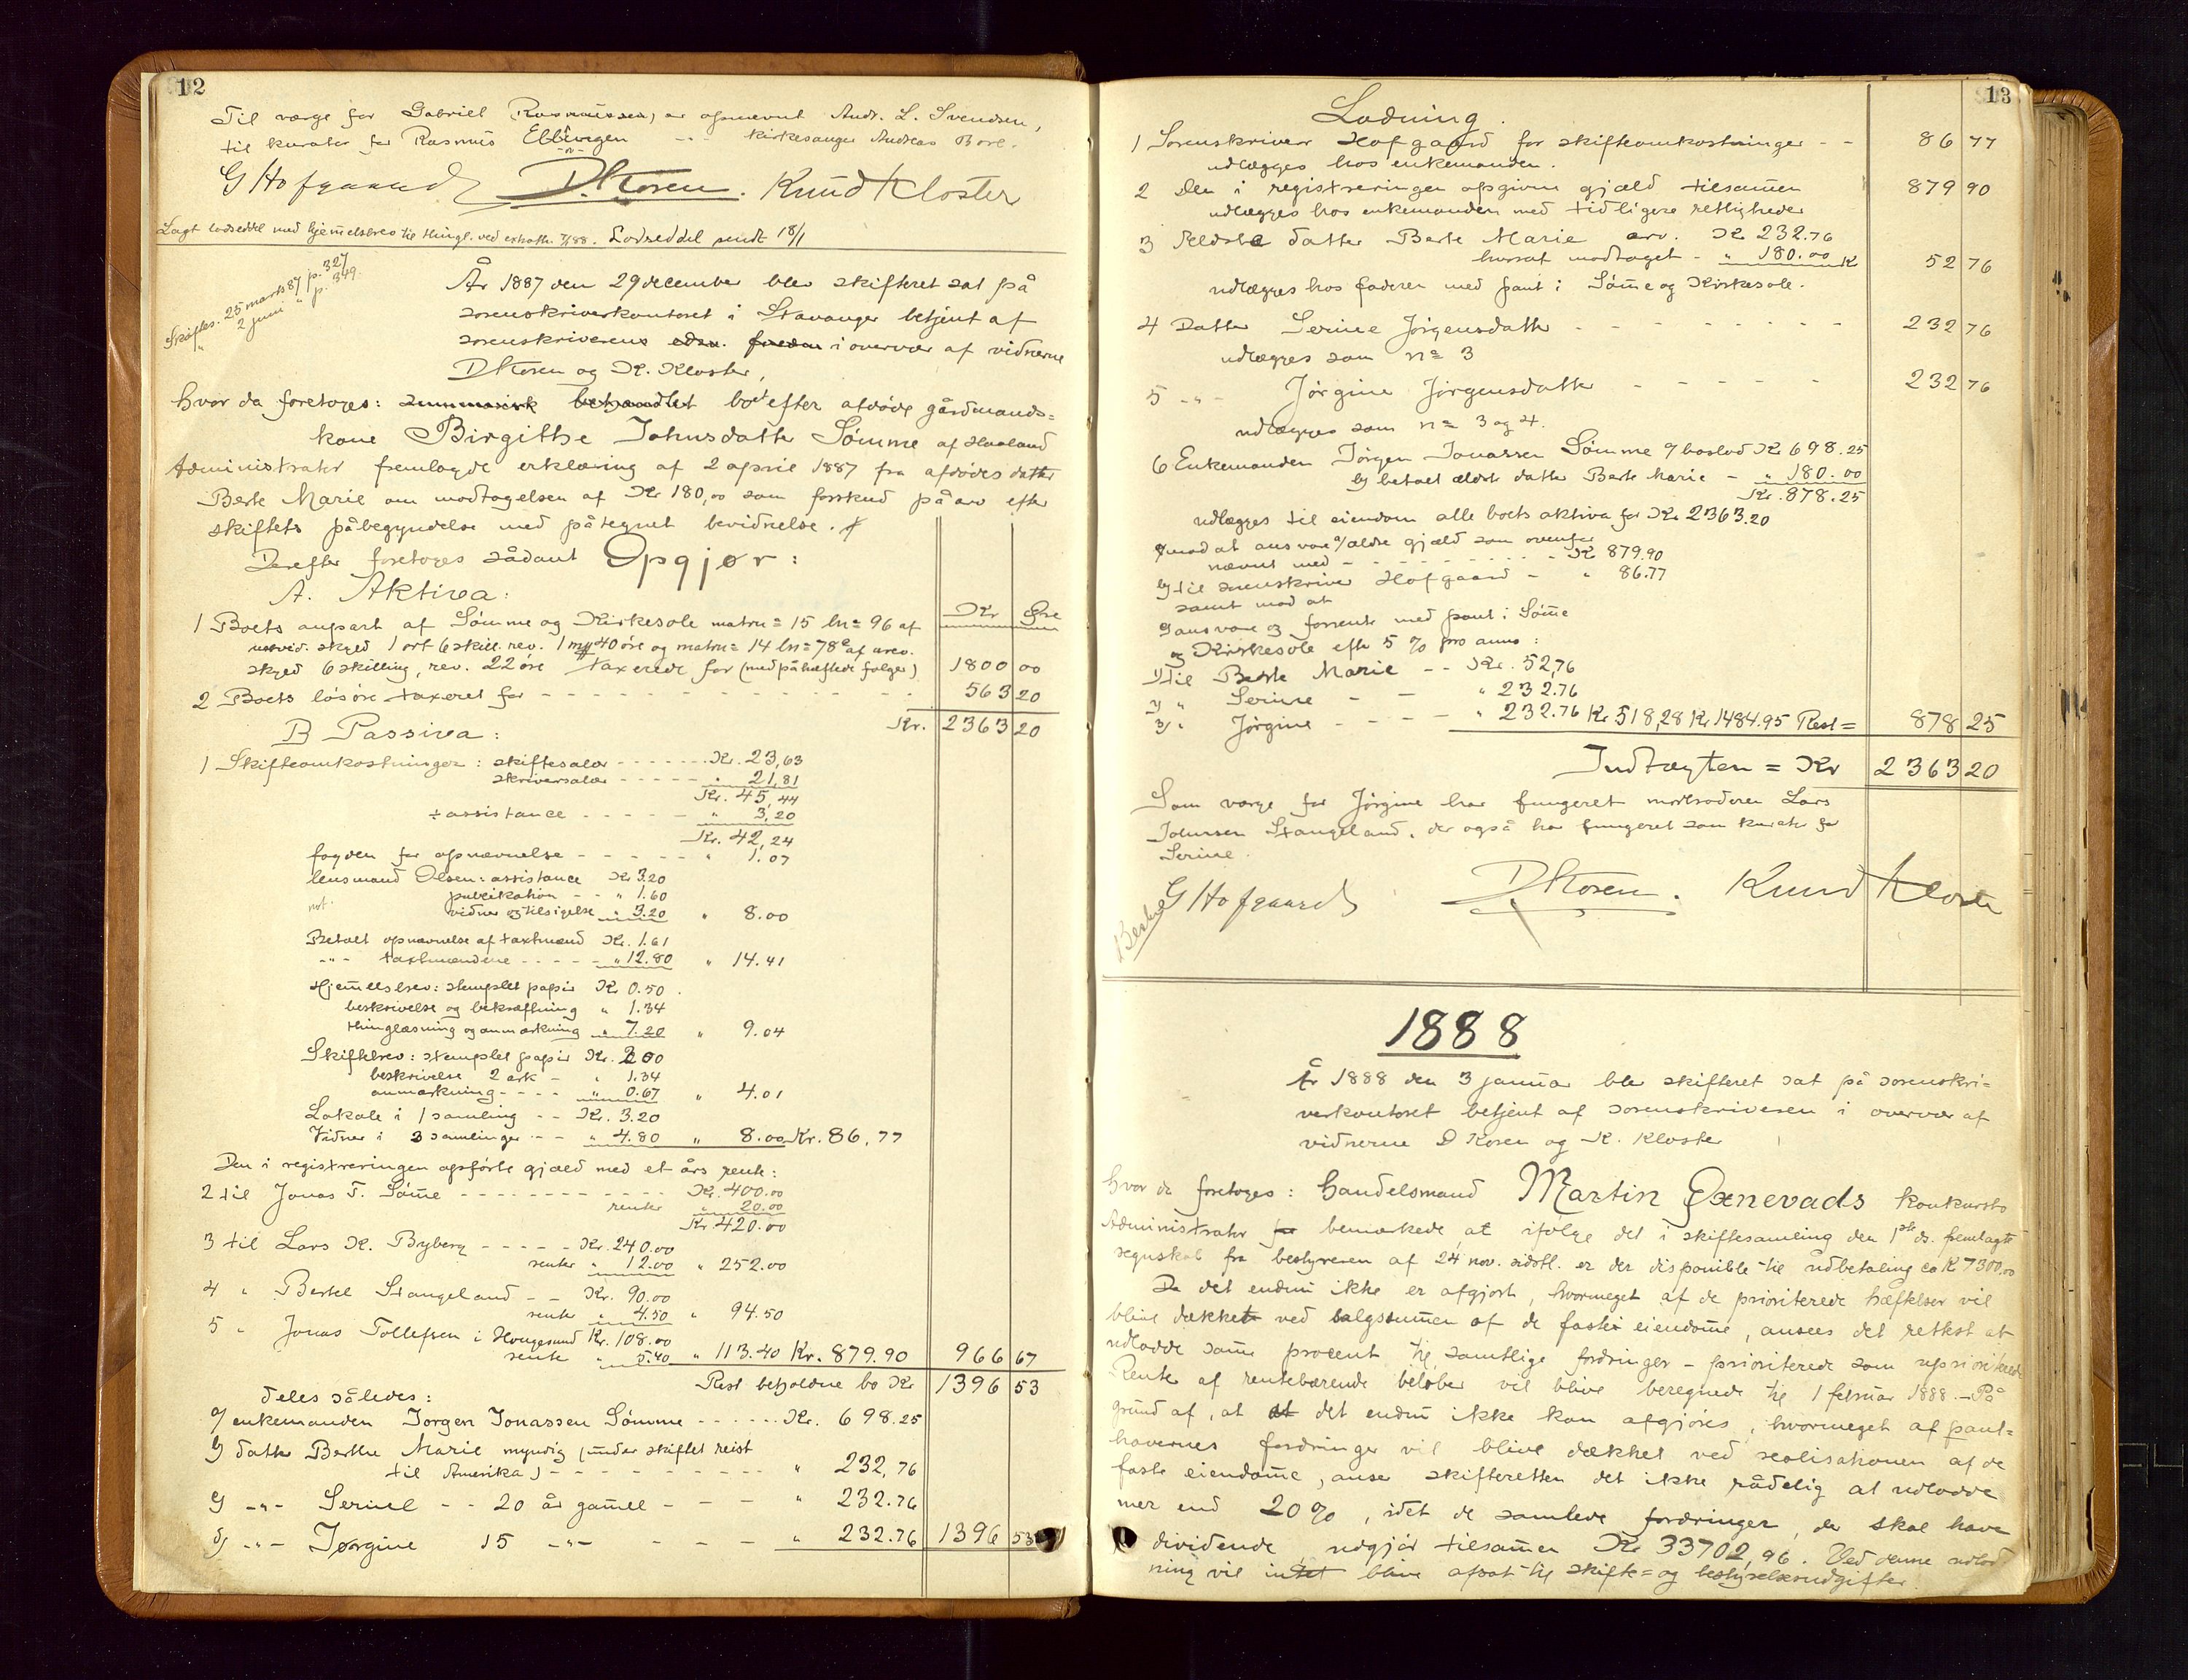 12
Til værge for Gabriel Rasmussen, er opnevnt Andr. L. Svendsen,
til kurator for Rasmus Ebbingen -"- kirkesanger Andreas Bore.
G Hofgaard DKosen. Knud Kloster
Lagt lodseddel med hjemelsbrev til thingl. ved extrath. 7/1 88. Lodseddel sendt 18/1
Skiftes. 25 marts 87 p. 327
" 2 juni " p. 349.
År 1887 den 29 december blev skifteret sat på
sorenskriverkontoret i Stavanger betjent af
sorenskriverens i overvær af vidnerne
DKosen og K. Kloster,
hvor da foretoges: summarisk behandlet boet efter afdøde gårdmands=
kone Birgithe Johnsdatter Sømme af Haaland
Administrator fremlagde erklæring af 2 april 1887 fra afdødes datter
Berte Marie om modtagelsen af Kr 180,00 som forskud på arv efter
skiftets påbegyndelse med påtegnet bevidnelse.
Derefter foretoges sådant Opgjør:
A. Aktiva:
Kr Øre
1 Boets anpart af Sømme og Kirkesole matrn= 15 ln= 96 af
skyld 1 ort 6 skill. rev. 1 my 40 øre og matrn= 14 ln= 78a af urev.
skyld 6 skilling, rev. 22 øre taxerede for (med påhæftede følger) 1800 00
2 Boets løsøre taxeret for - - - 563 20
Kr. 2363 20
B Passiva:
1 Skifteomkostninger: skiftesalær - - - Kr. 23,63
skriversalær - - - " 21,81
Kr. 45,44
÷ assistance - - - " 3,20
Kr. 42,24
fogden for opnævnelse - - - " 1.07
lensmand Olsen: assistance Kr 3.20
publikation - - " 1.60
not. vidner og tilsigelse " 3.20 " 8.00
Betalt opnævnelse af taxtmænd Kr. 1.61
-"- taxtmændene - - - " 12.80 " 14.41
Hjemelsbrev: stemplet papir Kr 0.50
beskrivelse og bekræftning " 1.34
thinglæsning og anmærkning " 7.20 " 9.04
Skiftebrev: stemplet papir Kr. 2 00
beskrivelse 2 ark - " 1.34
anmærkning - - - " 0.67 " 4.01
Lokale i 1 samling - - Kr. 3.20
Vidner i 3 samlinger - - " 4.80 " 8.00 Kr. 86,77
Den i registreringen opførte gjæld med et års rente:
2 til Jonas T. Sømme - - - Kr. 400.00
renter " 20.00
Kr 420.00
3 til Lars K. Byberg - - - Kr. 240.00
renter " 12.00 " 252.00
4 " Bertel Stangeland - - Kr. 90.00
renter " 4.50 " 94.50
5 " Jonas Tollefsen i Haugesund Kr. 108.00
rente " 5.40 " 113.40 Kr. 879.90 966 67
Rest beholdne bo Kr 1396 53
deles således:
a/ enkemanden Jørgen Jonassen Sømme - - - Kr. 698.25
b/ datter Berthe Marie myndig (under skiftet reist
til Amerika) - - - " 232,76
c/ -"- Serine - - 20 år gamel - - - " 232.76
d/ -"- Jørgine 15 -"- - - - " 232.76 1396 53
13
Lodning.
1 Sorenskriver Hofgaard for skifteomkostninger - - 86 77
udlægges hos enkemanden.
2 Den i registreringen opgivne gjæld tilsamen 879 90
udlægges hos enkemanden med tidligere rettigheder
3 Ældste datter Berte Marie arv. Kr 232.76
hvoraf modtaget - " 180.00 Kr 52 76
udlægges hos faderen med pant i Sømme og Kirkesole.
4 Datter Serine Jörgensdatter - - - 232 76
udlægges som n= 3
5 -"- Jørgine Jørgensdatter - - - 232 76
udlægges som n= 3 og 4.
6 Enkemanden Jørgen Jonassen Sømme a/ boslod Kr 698.25
b/ betalt ældste datter Berte Marie - " 180.00
Kr. 878.25
udlægges til eiendom alle boets aktiva for Kr 2363.20
mod at ansvare a/ ældre gjæld som ovenfor
nævnt med - - - Kr 879.90
b/ til sorenskriver Hofgaard - " 86.77
samt mod at
c/ ansvare og forrente med pant i Sømme
og Kirkesole efter 5 % pro anno:
1/ til Berte Marie - - Kr. 52,76
2/ " Serine - - " 232.76
3/ " Jørgine - - - " 232.76 Kr 518,28 Kr 1484.95 Rest = 878 25
Indtægten = Kr 2363 20
Som værge for Jörgine har fungeret morbroderen Lars
Johnsen Stangeland, der også har fungeret som kurator for
Serine.
G Hofgaard DKosen. Knud Kloster
1888
År 1888 den 3 januar blev skifteret sat på sorenskri=
verkontoret betjent af sorenskriveren i overvær af
vidnerne D Kosen og K. Kloster
hvor da foretoges: Handelsmand Martin Oxnevads konkursbo
Administrator bemærkede, at ifølge det i skiftesamling den 1ste ds. fremlagte
regnskab fra bestyreren af 24 nov. sidstl. er der disponible til udbetaling ca K 7300,00
Da det endnu ikke er afgjort, hvormeget af de prioriterede hæftelser vil
blive dækket ved salgssumen af de faste eiendome, ansees det rettest at
udlodde same procent til samtlige fordringer - prioriterede som uprioriterede
Renter af rentebærende beløber vil blive beregnede til 1 februar 1888. - På
grund af, at det endnu ikke kan afgjøres, hvormeget af pant=
havernes fordringer vil blive dækket ved realisationen af de
faste eiendome, anser skifteretten det ikke rådelig at udlodde
mer end 20 %, idet de samlede fordringer, der skal have
dividende udgjør tilsamen Kr 33702,96. Ved denne udlod
ning vil intet blive afsat til skifte= og bestyrelsesudgifter.